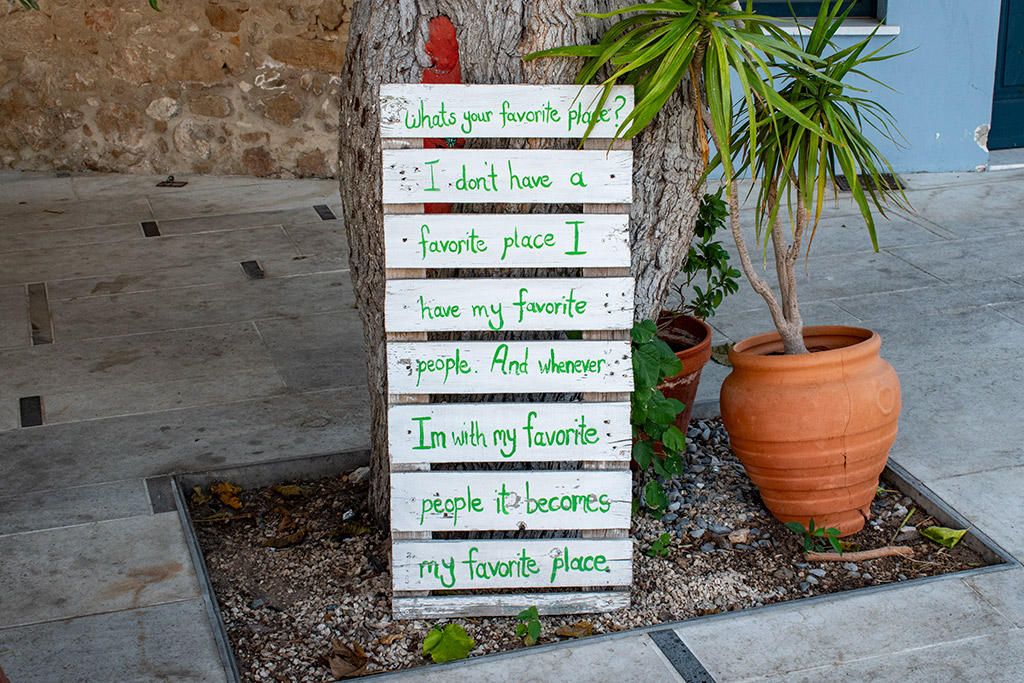 Whats your favorite place?
I don't have a
favorite place I
have my favorite
people. And whenever
Im with my favorite
people it becomes
my favorite place.